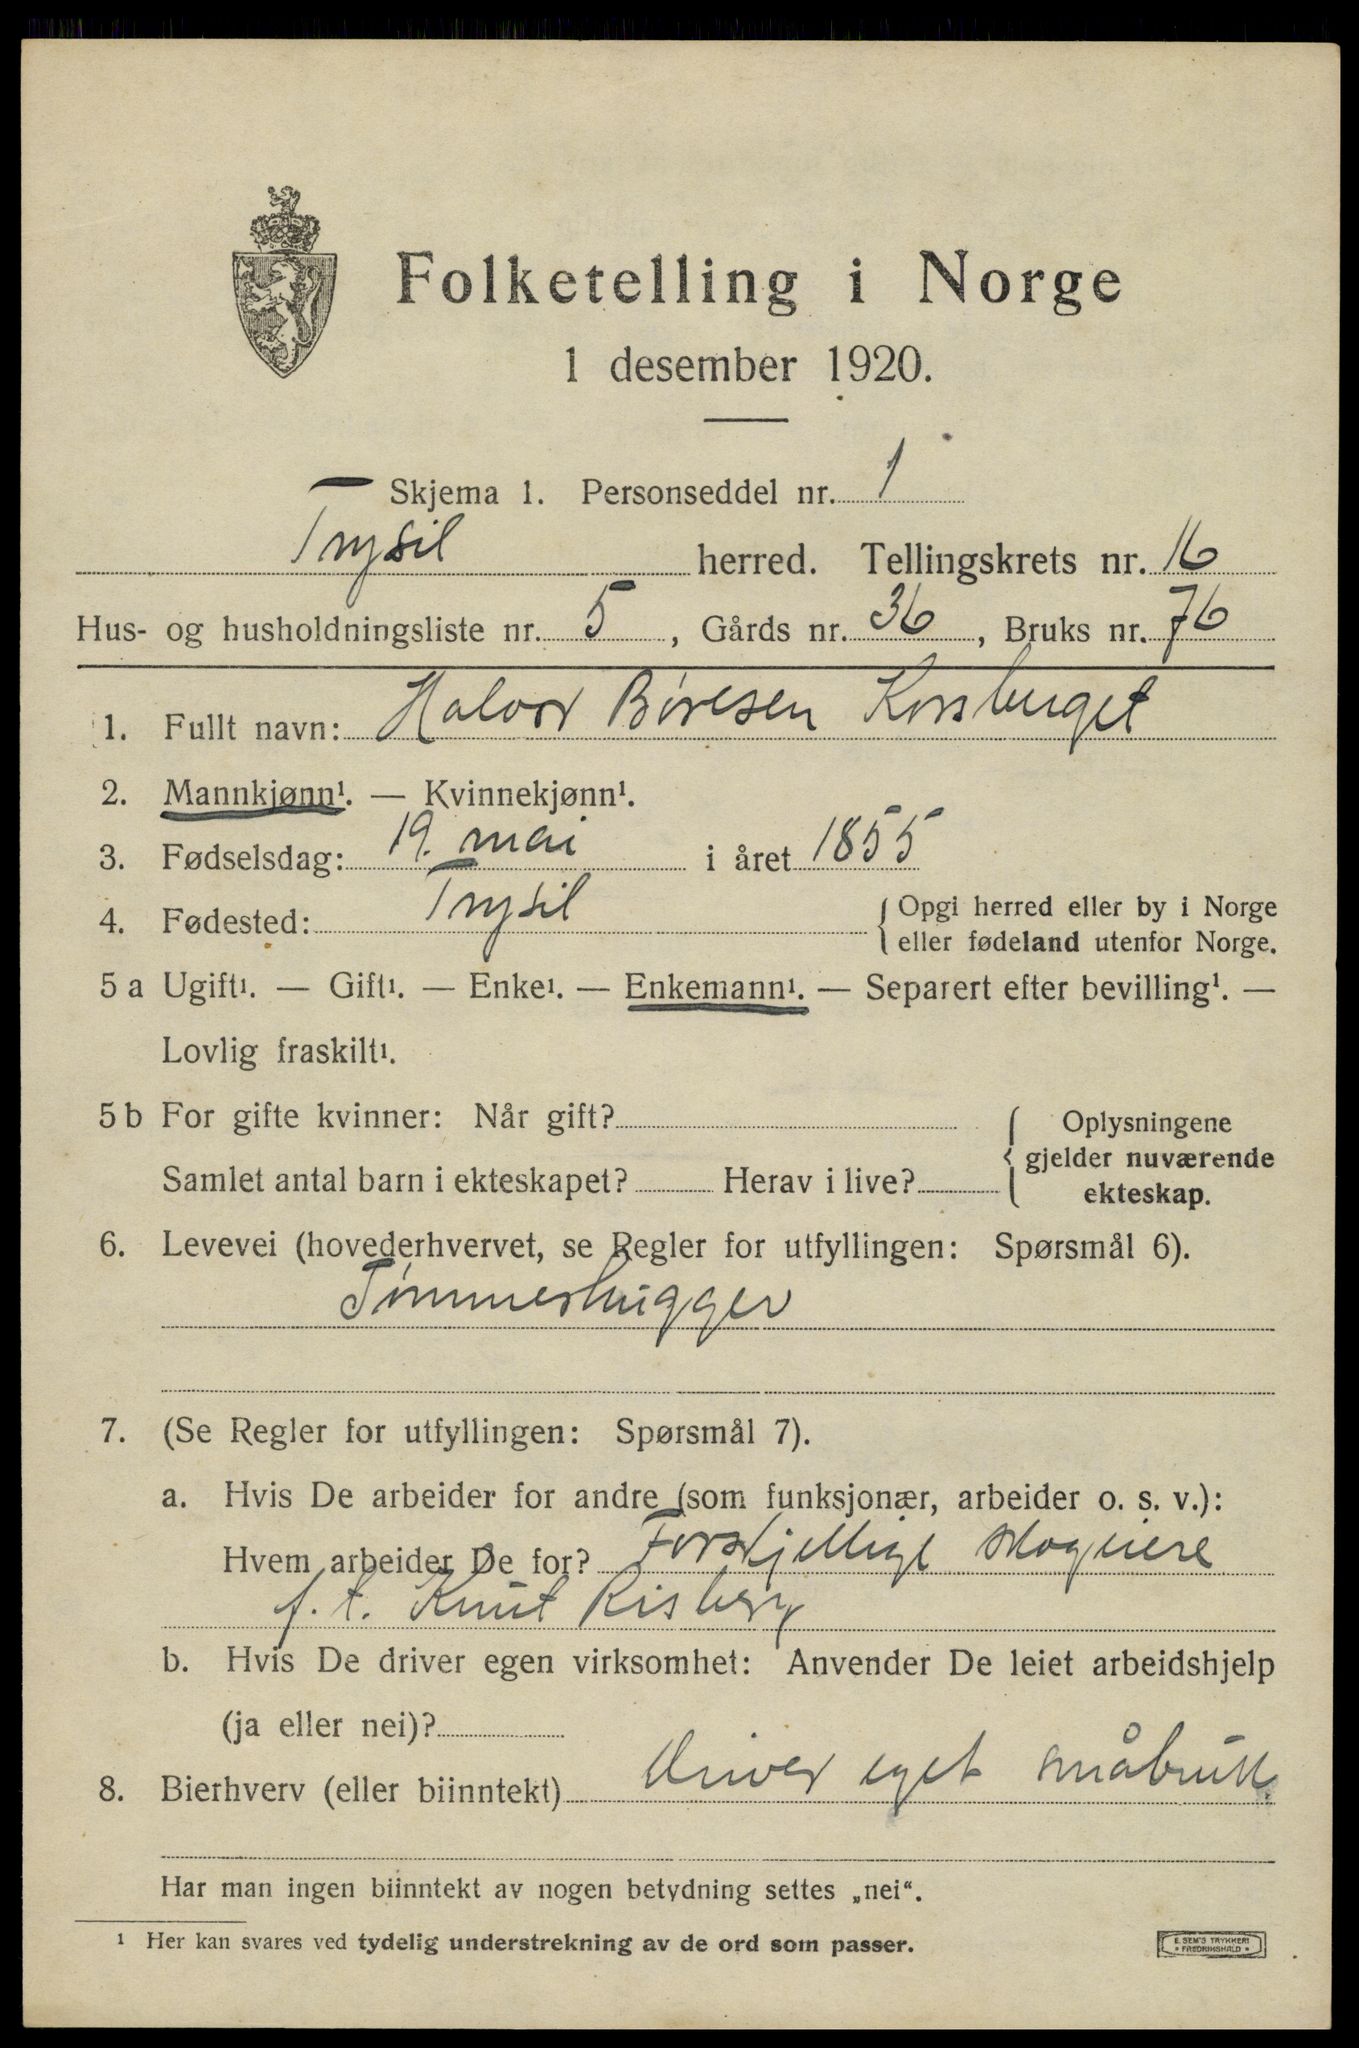 Folketelling i Norge
1 desember 1920.
Skjema 1. Personseddel nr. 1
Trysil herred. Tellingskrets nr. 16
Hus- og husholdningsliste nr. 5, Gårds nr. 36, Bruks nr. 76
1. Fullt navn: Halvor Børesen Korsberget
2. Mannkjønn¹. — Kvinnekjønn¹.
3. Fødselsdag: 19. mai i året 1855
4. Fødested: Trysil { Opgi herred eller by i Norge
eller fødeland utenfor Norge.
5 a Ugift¹. — Gift¹. — Enke¹. — Enkemann¹. — Separert efter bevilling¹. —
Lovlig fraskilt¹.
5 b For gifte kvinner: Når gift? { Oplysningene
gjelder nuværende
Samlet antal barn i ekteskapet? Herav i live? ekteskap.
6. Levevei (hovederhvervet, se Regler for utfyllingen: Spørsmål 6).
Tømmerhugger
7. (Se Regler for utfyllingen: Spørsmål 7).
a. Hvis De arbeider for andre (som funksjonær, arbeider o. s. v.):
Hvem arbeider De for? Forskjellige skogeiere
f. t. Knut Risberg
b. Hvis De driver egen virksomhet: Anvender De leiet arbeidshjelp
(ja eller nei)?
8. Bierhverv (eller biinntekt) driver eget småbruk
Har man ingen biinntekt av nogen betydning settes „nei“.
¹ Her kan svares ved tydelig understrekning av de ord som passer.
E. SEM'S TRYKKERI
• FREDRIKSHALD •